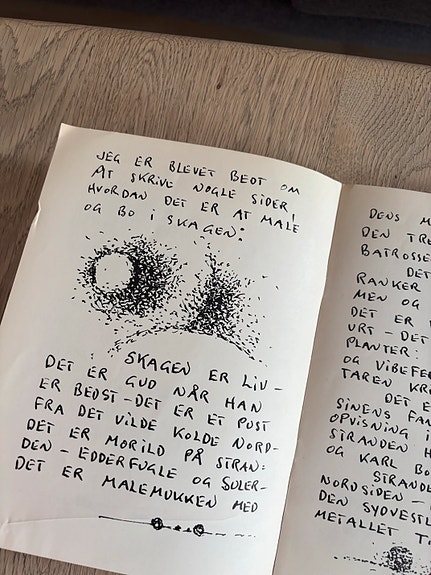 JEG ER BLEVET BEDT OM
AT SKRIVE NOGLE SIDER!
HVORDAN DET ER AT MALE
OG BO I SKAGEN:
SKAGEN ER LIV-
DET ER GUD NÅR HAN
ER BEDST-DET ER ET PUST
FRA DET VILDE KOLDE NORD-
DET ER MORILD PÅ STRAN:
DEN - EDDERFUGLE OG SULER-
DET ER MALEMUKKEN MED
DENS
DEN
BATROSSE
DET
RANKER
MEN OG
DET ER
URT - DET
PLANTER:
OG VIBEFE
TAREN KR
DET E
SINENS FAN
OPVISNING I
STRANDEN H
OG KARL BO
STRANDE
NORDSIDEN -
DEN SYDVESTL
METALLET T